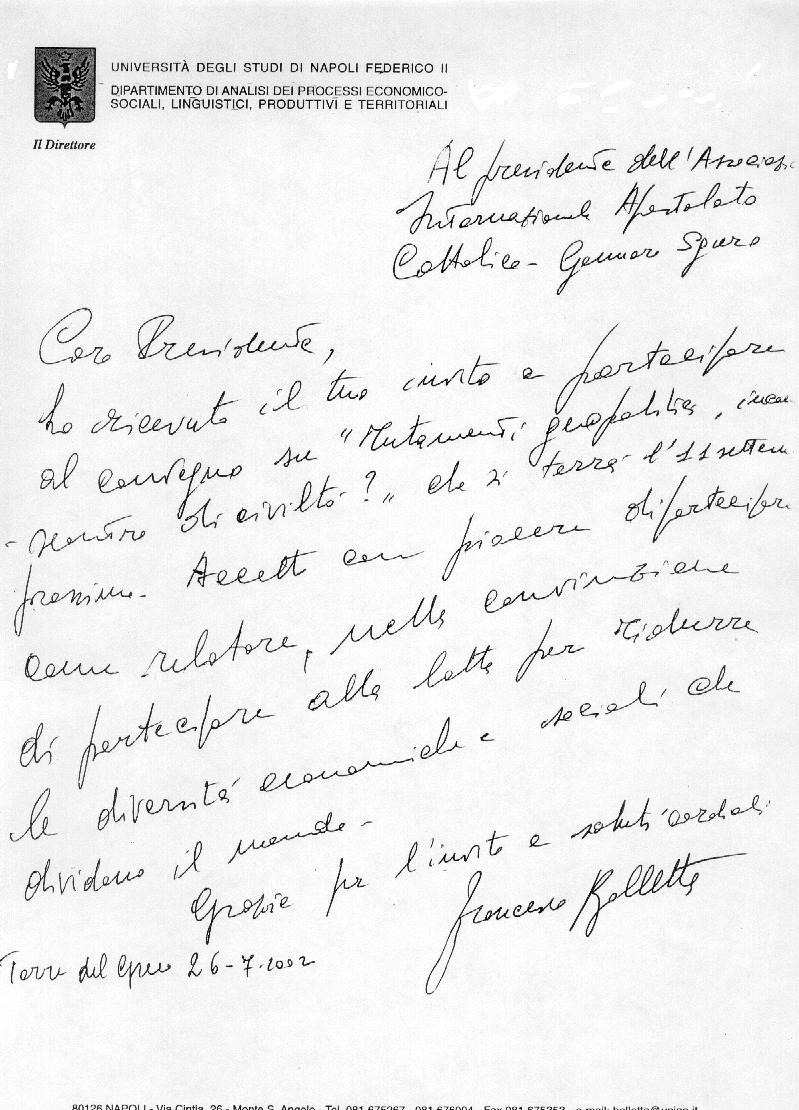 UNIVERSITÀ DEGLI STUDI DI NAPOLI FEDERICO II
DIPARTIMENTO DI ANALISI DEI PROCESSI ECONOMICO-
SOCIALI, LINGUISTICI, PRODUTTIVI E TERRITORIALI
Il Direttore
Al presidente dell'Associazio
Internazionale Apostolato
Cattolico - Gennaro Sguro
Caro Presidente,
ho ricevuto il tuo invito a partecipare
al convegno su "Mutamenti geopolitici,
di civiltà?" che si terrà l'11 settem
prossimo. Accetto con piacere di partecipare
come relatore, nella convinzione
di partecipare alla lotta per ridurre
le diversità economiche e sociali che
dividono il mondo -
Grazie per l'invito e saluti cordiali
Francesco Balletta
Torre del Greco 26-7-2002
80126 NAPOLI - Via Cintia, 26 - Monte S. Angelo - Tel. 081.675267 - 081.676004 - Fax 081.675353 - e-mail: balletta@unina.it